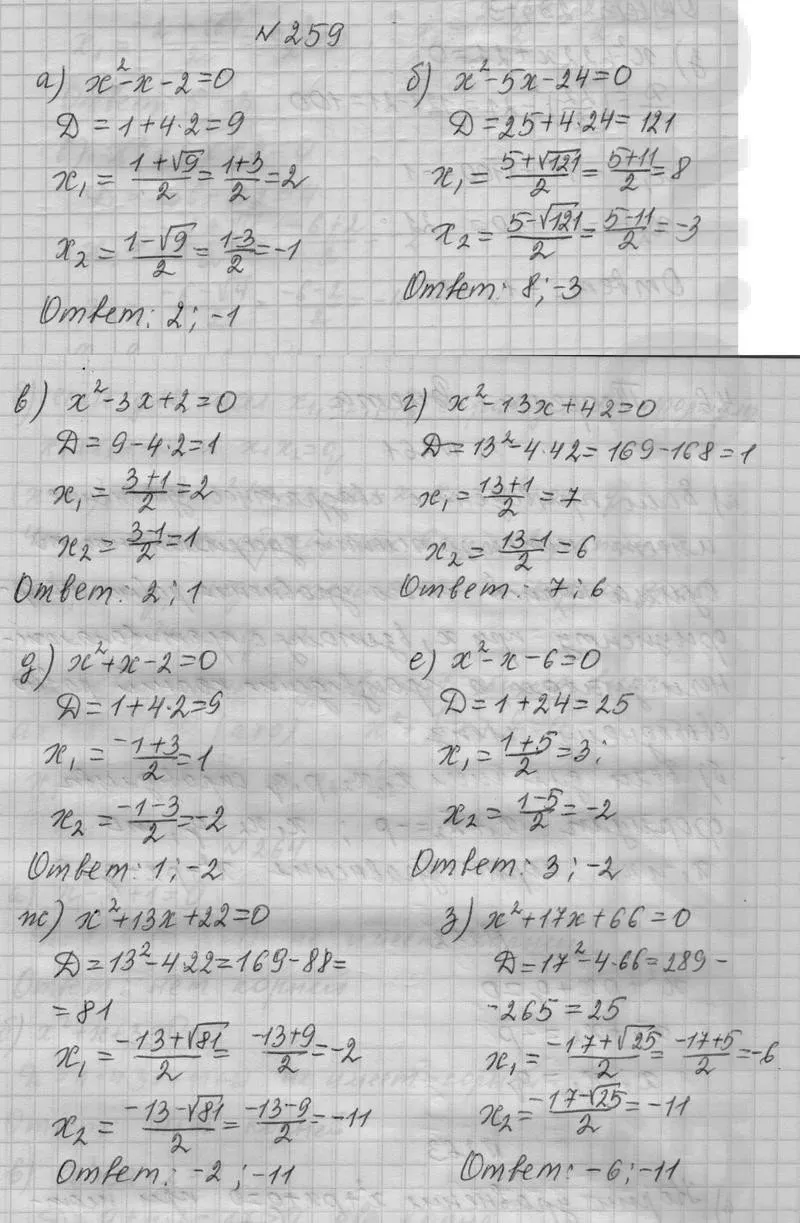 №259
а) x²-x-2=0
Д=1+4·2=9
x₁=(1+√9)/2=(1+3)/2=2
x₂=(1-√9)/2=(1-3)/2=-1
Ответ: 2; -1
б) x²-5x-24=0
Д=25+4·24=121
x₁=(5+√121)/2=(5+11)/2=8
x₂=(5-√121)/2=(5-11)/2=-3
Ответ: 8; -3
в) x²-3x+2=0
Д=9-4·2=1
x₁=(3+1)/2=2
x₂=(3-1)/2=1
Ответ: 2; 1
г) x²-13x+42=0
Д=13²-4·42=169-168=1
x₁=(13+1)/2=7
x₂=(13-1)/2=6
Ответ: 7; 6
д) x²+x-2=0
Д=1+4·2=9
x₁=(-1+3)/2=1
x₂=(-1-3)/2=-2
Ответ: 1; -2
е) x²-x-6=0
Д=1+24=25
x₁=(1+5)/2=3;
x₂=(1-5)/2=-2
Ответ: 3; -2
ж) x²+13x+22=0
Д=13²-4·22=169-88=
=81
x₁=(-13+√81)/2=(-13+9)/2=-2
x₂=(-13-√81)/2=(-13-9)/2=-11
Ответ: -2; -11
з) x²+17x+66=0
Д=17²-4·66=289-
-265=25
x₁=(-17+√25)/2=(-17+5)/2=-6
x₂=(-17-√25)/2=-11
Ответ: -6; -11